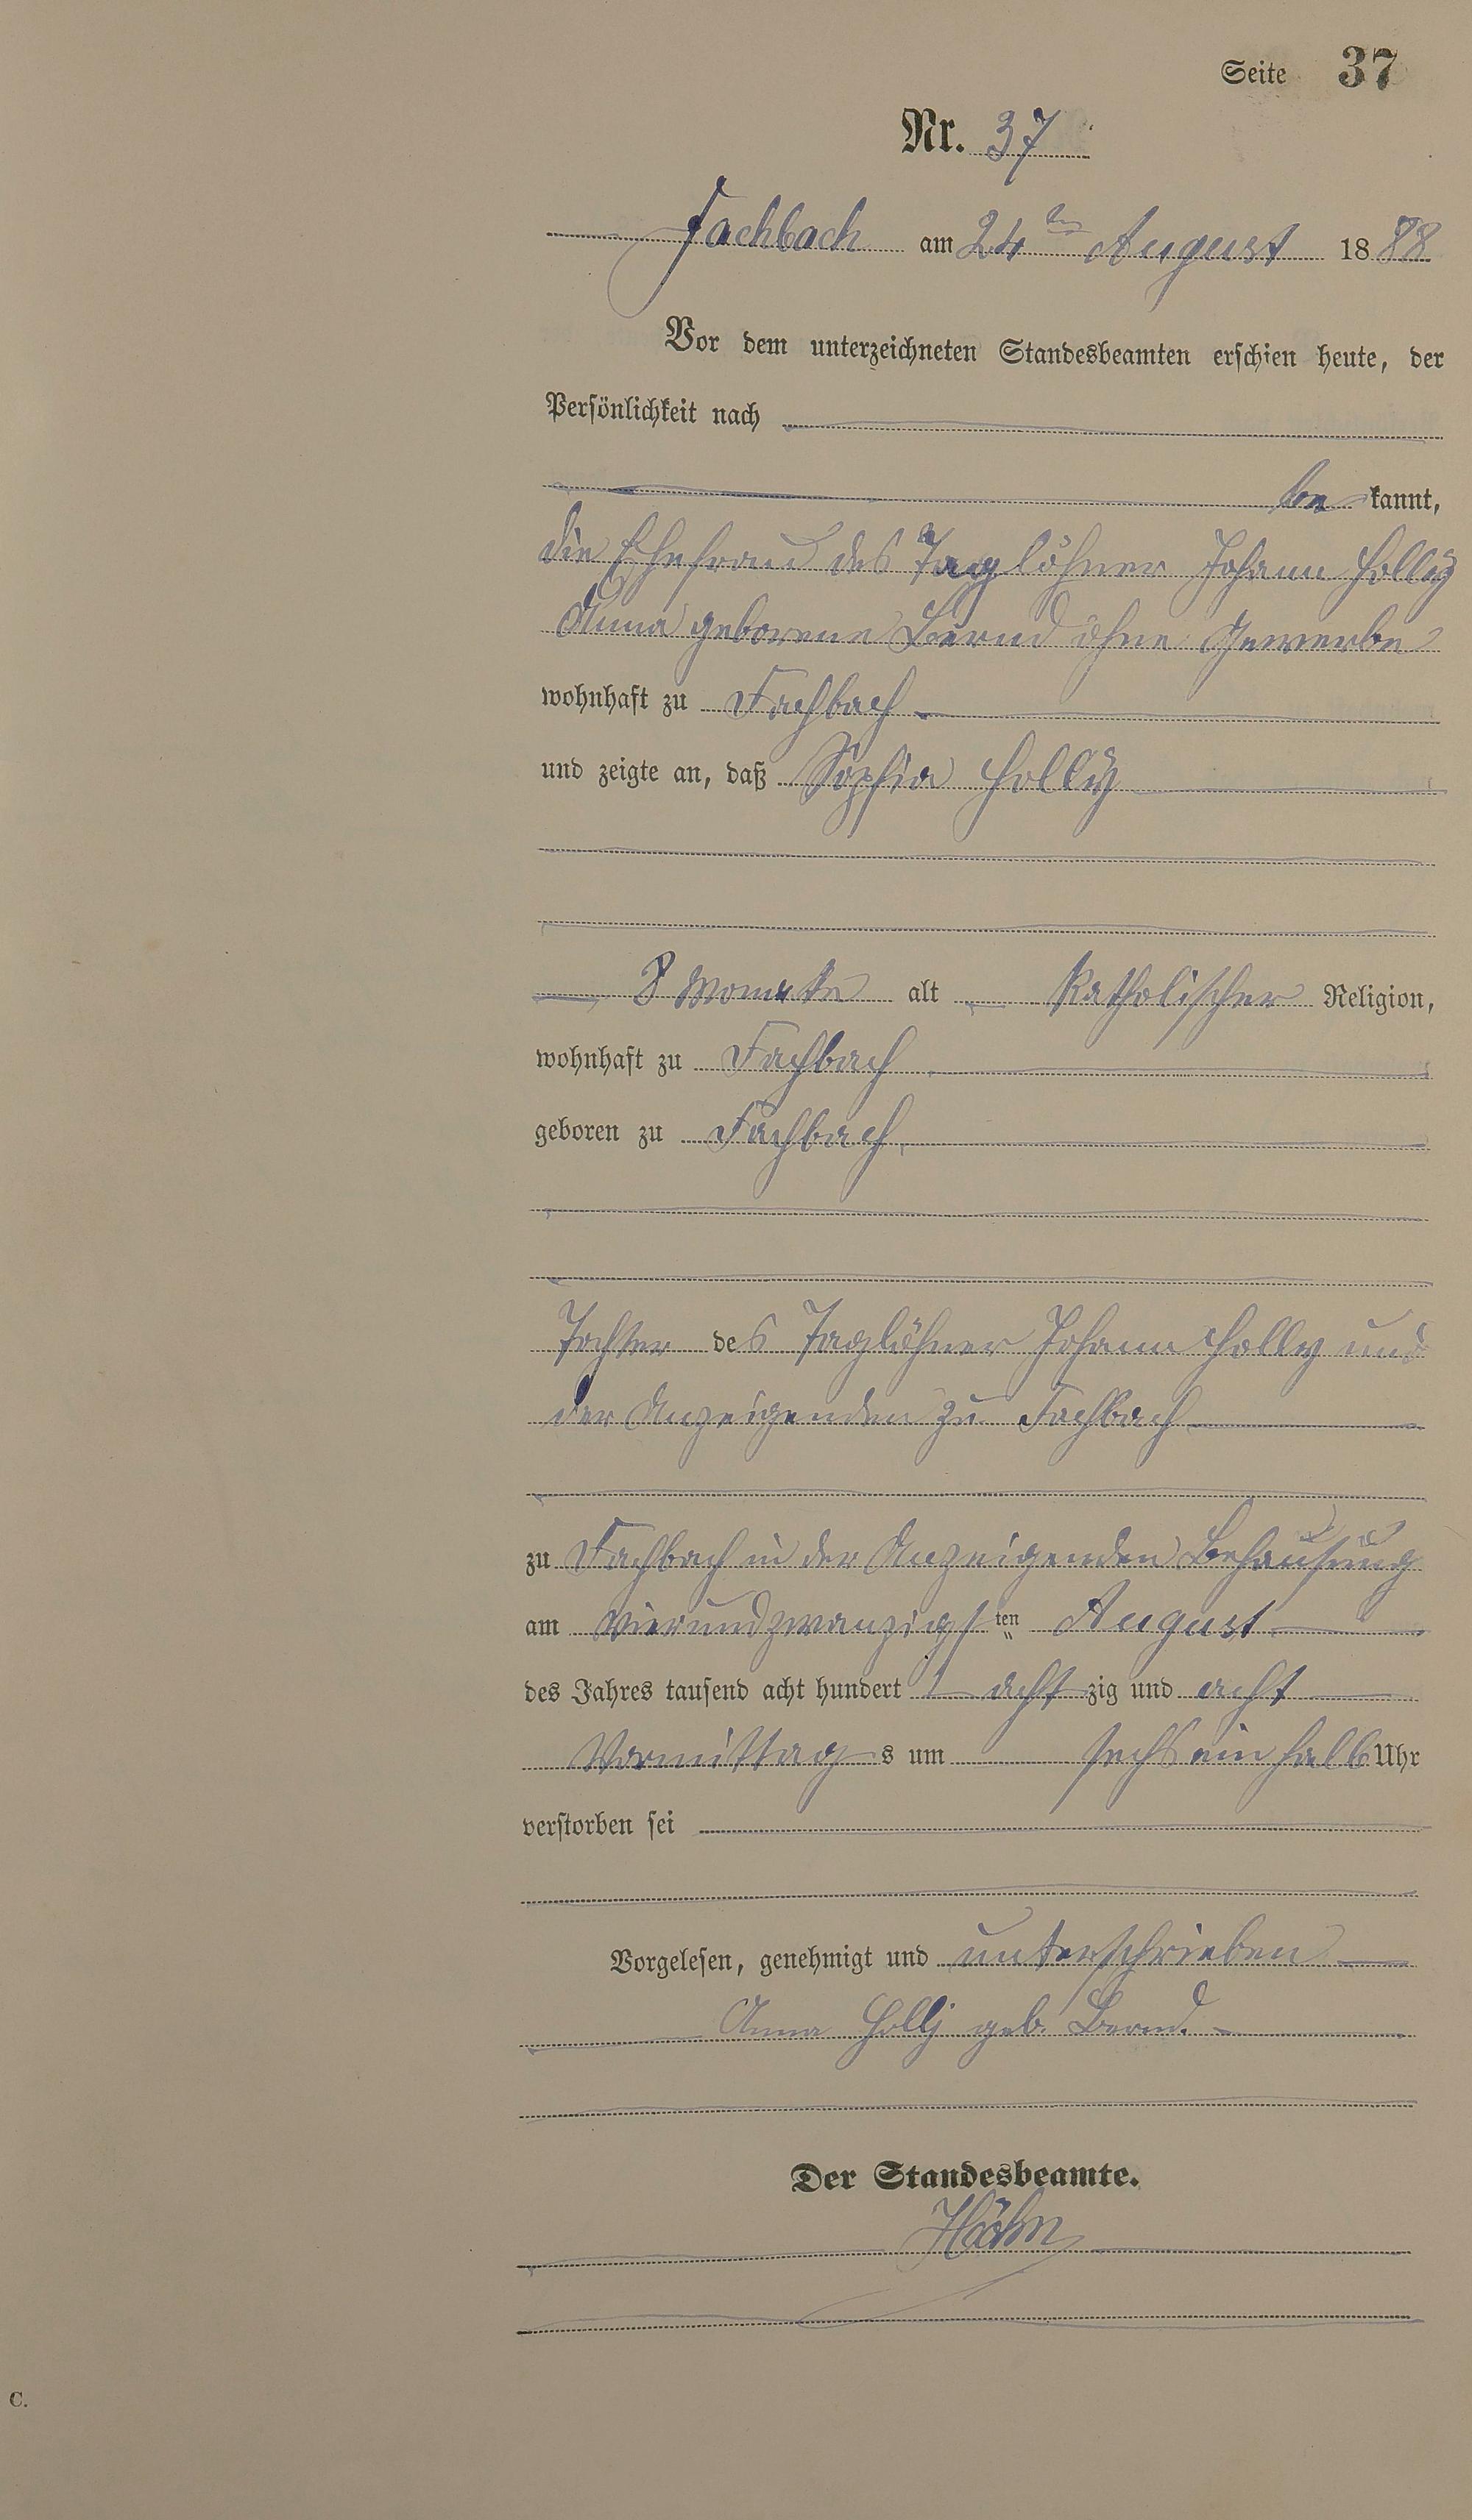 Seite 37
Nr. 37
Fachbach am 24ten August 1888
Vor dem unterzeichneten Standesbeamten erschien heute, der
Persönlichkeit nach
be kannt,
die Ehefrau des Taglöhner Johann Holly
Anna geborene Bernd ohne Gewerbe
wohnhaft zu Fachbach
und zeigte an, daß Sophia Holly
8 Monate alt katholischer Religion,
wohnhaft zu Fachbach
geboren zu Fachbach
Tochter des Taglöhner Johann Holly und
der Anzeigenden zu Fachbach
zu Fachbach in der Anzeigenden Behausung
am vierundzwanzigsten August
des Jahres tausend acht hundert achtzig und acht
Vormittags um sechs ein halb Uhr
verstorben sei
Vorgelesen, genehmigt und unterschrieben
Anna Hollj geb. Bernd.
Der Standesbeamte.
Höhn
C.